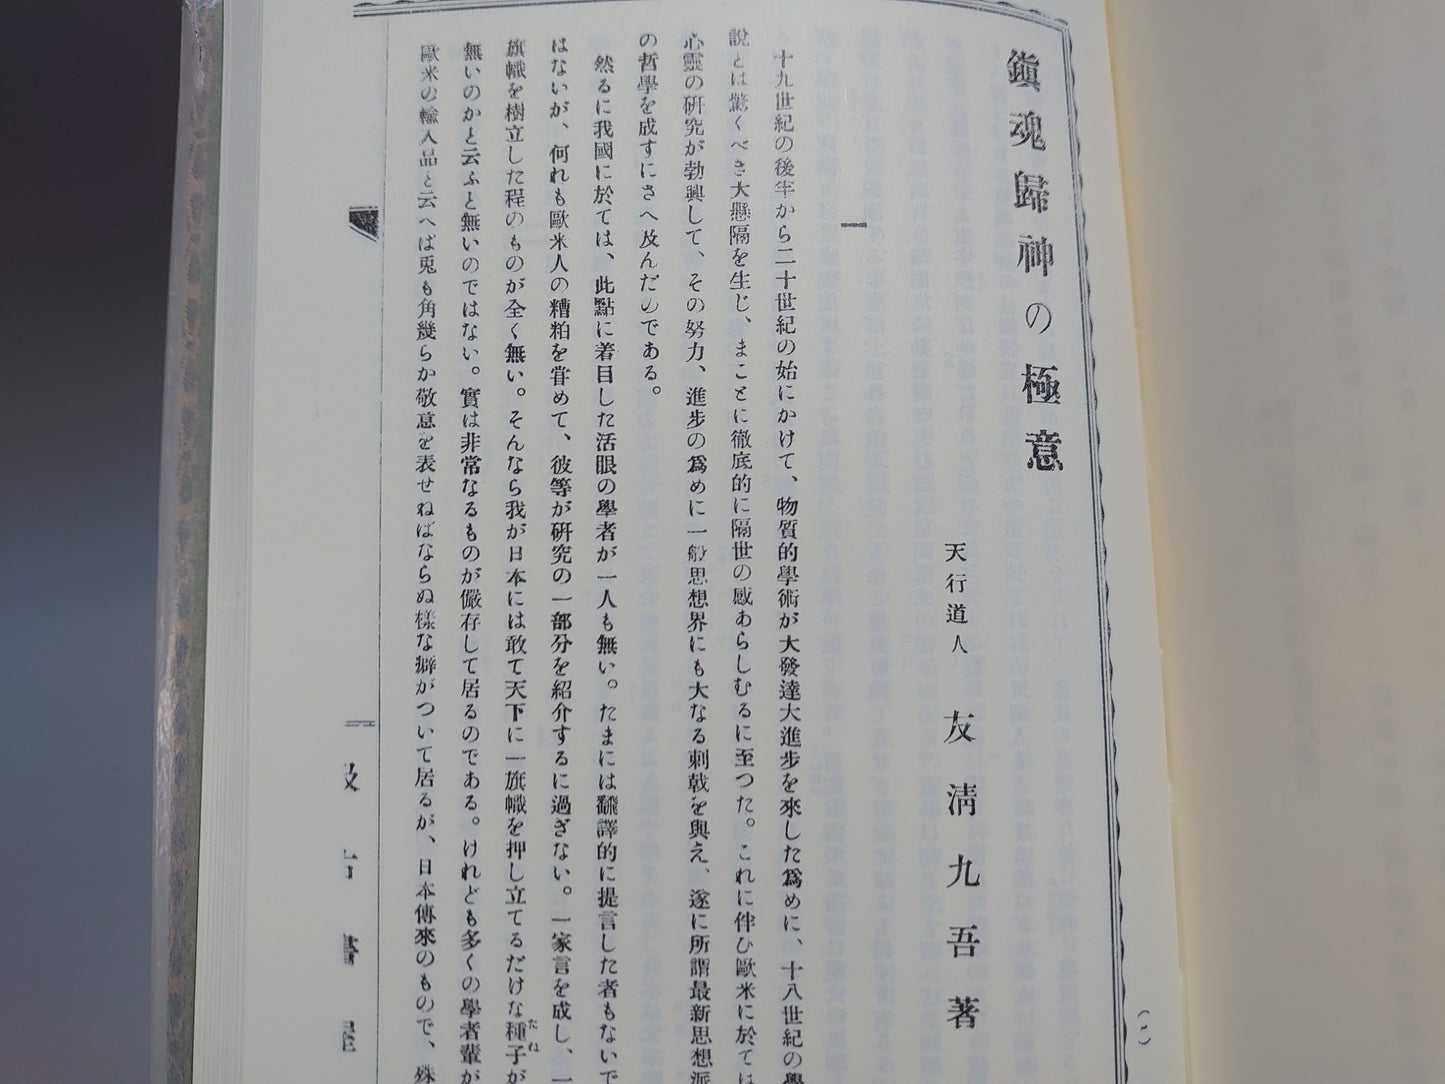 鎭魂歸神の極意
天行道人 友淸九吾著
十九世紀の後半から二十世紀の始にかけて、物質的學術が大發達大進步を來した爲めに、十八世紀の學
說とは驚くべき大懸隔を生じ、まことに徹底的に隔世の感あらしむるに至つた。これに伴ひ歐米に於ては
心靈の硏究が勃興して、その努力、進步の爲めに一般思想界にも大なる刺戟を與え、遂に所謂最新思想派
の哲學を成すにさへ及んだのである。
然るに我國に於ては、此點に着目した活眼の學者が一人も無い。たまには飜譯的に提言した者もないで
はないが、何れも歐米人の糟粕を甞めて、彼等が硏究の一部分を紹介するに過ぎない。一家言を成し、一
旗幟を樹立した程のものが全く無い。そんなら我が日本には敢て天下に一旗幟を押し立てるだけな種子が
たね
無いのかと云ふと無いのではない。實は非常なるものが儼存して居るのである。けれども多くの學者輩が
歐米の輸入品と云へば兎も角幾らか敬意を表せねばならぬ樣な癖がついて居るが、日本傳來のもので、殊
(一)